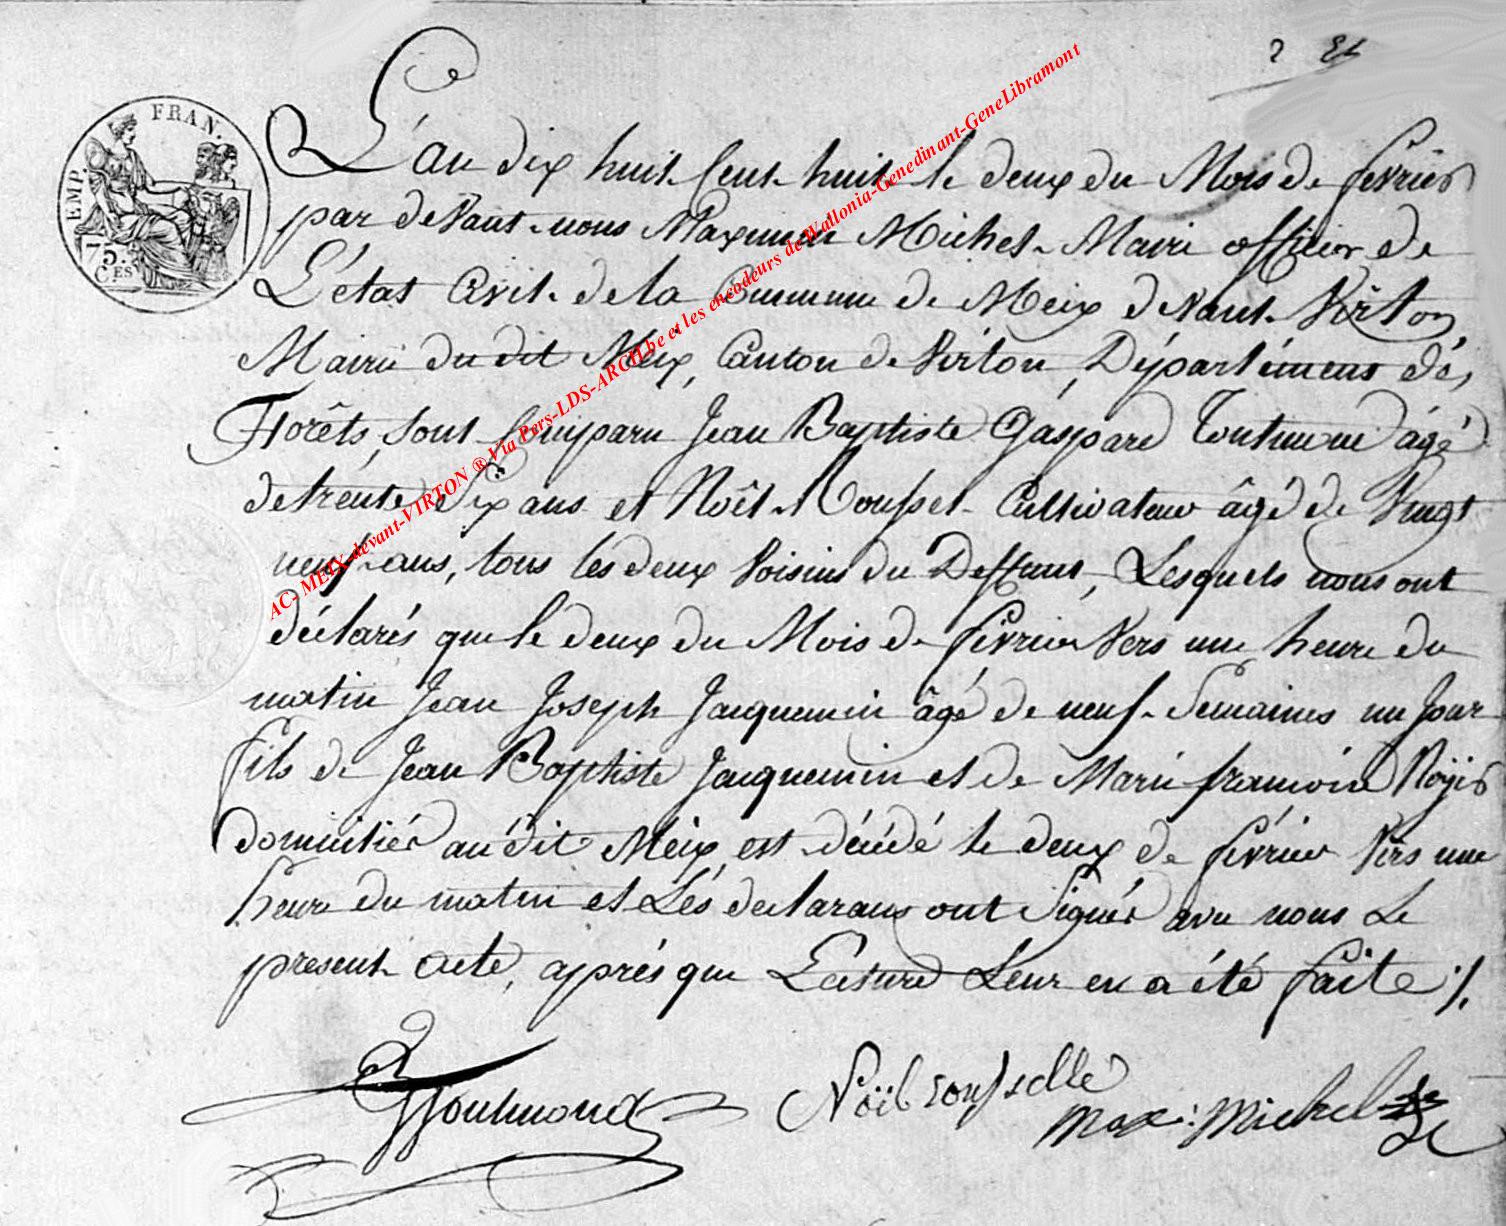 2
EMP. FRAN.
75.
C.ES
L'an dix huit Cent huit le deux du Mois de fevrier
par devant nous Maximin Michel Maire officier de
L'état Civil de la Commune de Meix devant Virton
Mairie du dit Meix, Canton de Virton, Département dés
Forêts, sont Comparu Jean Baptiste Gaspard âgé
de trénte Six ans et Noêl Rousset Cultivateur âgé de Vingt
neuf ans, tous les deux Voisins du Deffunt, Lesquels nous ont
déclarés que le deux du Mois de fevrier Vers une heure du
matin Jean Joseph Jacquemin âgé de neuf Semaines un Jour
fils de Jean Baptiste Jacquemin et de Marie francoise
domiciliés au dit Méix est décédé le deux de février Vers une
heure du matin et Lés declarans ont Signés avec nous Le
present acte, après que Lecture Leur en a été faite ./.
Noël rousselle
Max: Michel
AC- MEIX-devant-VIRTON ® Via Pers-LDS-ARCH.be et les encodeurs de Wallonia-Genedinant-GeneLibramont